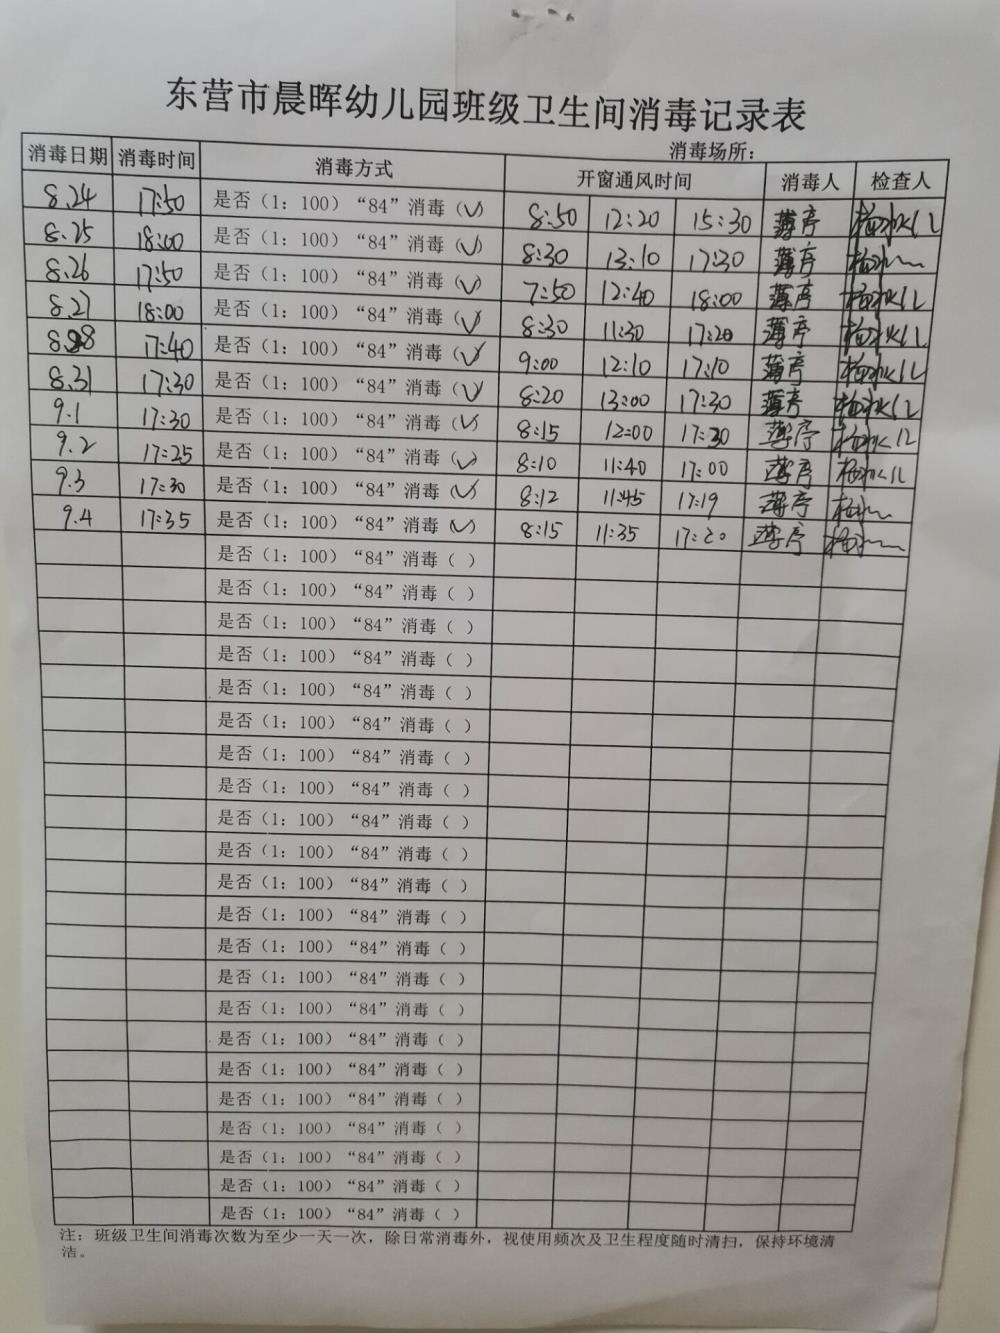 东营市晨晖幼儿园班级卫生间消毒记录表
消毒场所：
消毒日期 消毒时间 消毒方式 开窗通风时间 消毒人 检查人
8.24 17:50 是否（1：100）“84”消毒（√） 8:50 12:20 15:30 薄亭
8.25 18:00 是否（1：100）“84”消毒（√） 8:30 13:10 17:30 薄亭
8.26 17:50 是否（1：100）“84”消毒（√） 7:50 12:40 18:00 薄亭
8.27 18:00 是否（1：100）“84”消毒（√） 8:30 11:30 17:20 薄亭
8.28 17:40 是否（1：100）“84”消毒（√） 9:00 12:10 17:10 薄亭
8.31 17:30 是否（1：100）“84”消毒（√） 8:20 13:00 17:30 薄亭
9.1 17:30 是否（1：100）“84”消毒（√） 8:15 12:00 17:30 薄亭
9.2 17:25 是否（1：100）“84”消毒（√） 8:10 11:40 17:00 薄亭
9.3 17:30 是否（1：100）“84”消毒（√） 8:12 11:45 17:19 薄亭
9.4 17:35 是否（1：100）“84”消毒（√） 8:15 11:35 17:20 薄亭
是否（1：100）“84”消毒（ ）
是否（1：100）“84”消毒（ ）
是否（1：100）“84”消毒（ ）
是否（1：100）“84”消毒（ ）
是否（1：100）“84”消毒（ ）
是否（1：100）“84”消毒（ ）
是否（1：100）“84”消毒（ ）
是否（1：100）“84”消毒（ ）
是否（1：100）“84”消毒（ ）
是否（1：100）“84”消毒（ ）
是否（1：100）“84”消毒（ ）
是否（1：100）“84”消毒（ ）
是否（1：100）“84”消毒（ ）
是否（1：100）“84”消毒（ ）
是否（1：100）“84”消毒（ ）
是否（1：100）“84”消毒（ ）
是否（1：100）“84”消毒（ ）
是否（1：100）“84”消毒（ ）
是否（1：100）“84”消毒（ ）
是否（1：100）“84”消毒（ ）
是否（1：100）“84”消毒（ ）
是否（1：100）“84”消毒（ ）
注：班级卫生间消毒次数为至少一天一次，除日常消毒外，视使用频次及卫生程度随时清扫，保持环境清
洁。